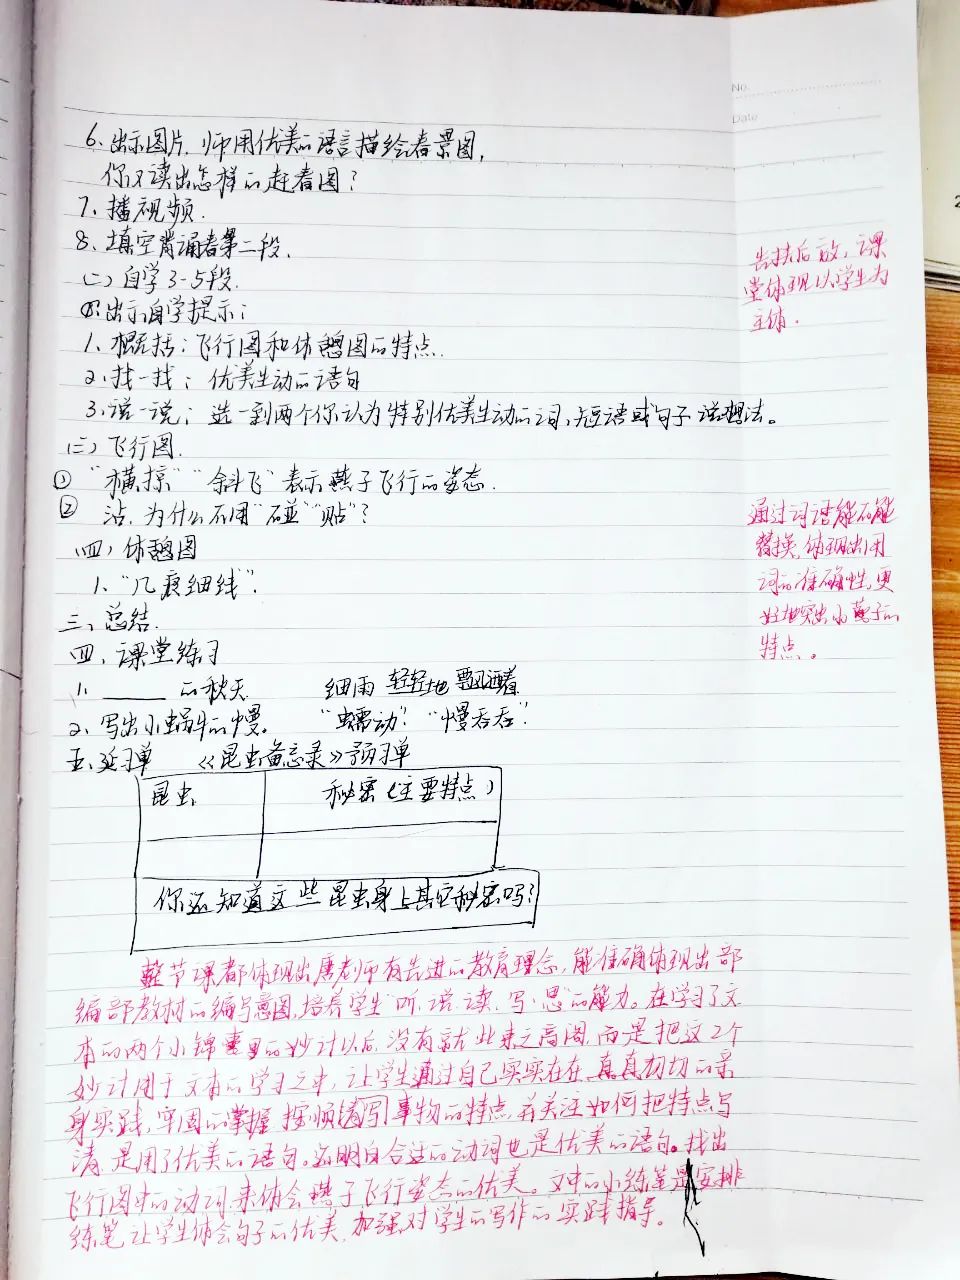 No.
Date
6、出示图片,师用优美的语言描绘春景图,
你又读出怎样的赶春图?
7、播视频.
8、填空背诵春第二段.
(二)自学3-5段.
出示自学提示:
1、概括:飞行图和休憩图的特点.
2、找一找:优美生动的语句
3、说一说:选一到两个你认为特别优美生动的词,短语或句子 说想法。
(三)飞行图.
① "横掠" "斜飞" 表示燕子飞行的姿态.
② 沾,为什么不用"碰" "贴"?
(四)休憩图
1、"几痕细线".
三、总结.
四、课堂练习
1、______ 的秋天 细雨 轻轻地 飘洒着
2、写出小蜗牛的慢。 "蠕动" "慢吞吞".
五、延习单 《昆虫备忘录》预习单
昆虫 秘密(主要特点)
你还知道这些昆虫身上其它秘密吗?
先扶后放,课
堂体现以学生为
主体.
通过词语能不能
替换,体现出用
词的准确性,更
好地突出小燕子的
特点。
整节课都体现出唐老师有先进的教育理念,能准确体现出部
编部教材的编写意图,培养学生"听、说、读、写、思"的能力。在学习了文
本的两个小锦囊里的妙计以后,没有就此束之高阁,而是把这2个
妙计用于文本的学习之中,让学生通过自己实实在在、真真切切的亲
身实践,牢固的掌握 按顺序写事物的特点,并关注如何把特点写
清,是用了优美的语句。也明白合适的动词也是优美的语句。找出
飞行图中的动词,来体会燕子飞行姿态的优美。文中的小练笔是安排
练笔,让学生体会句子的优美,加强对学生的写作的实践指导。